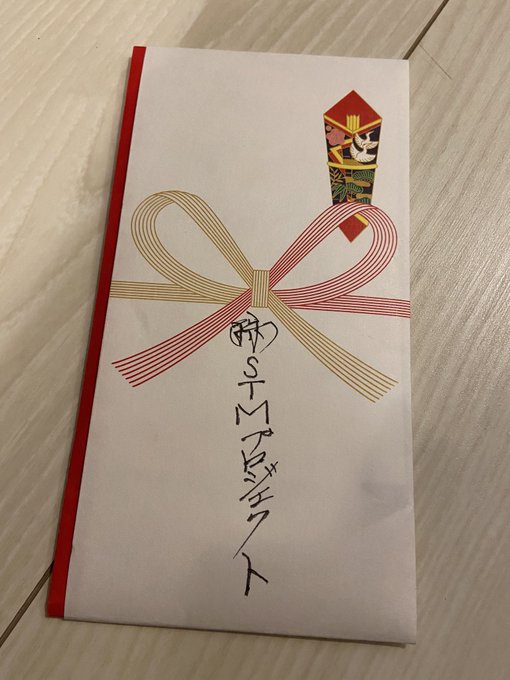 ㈱STMプロジェクト